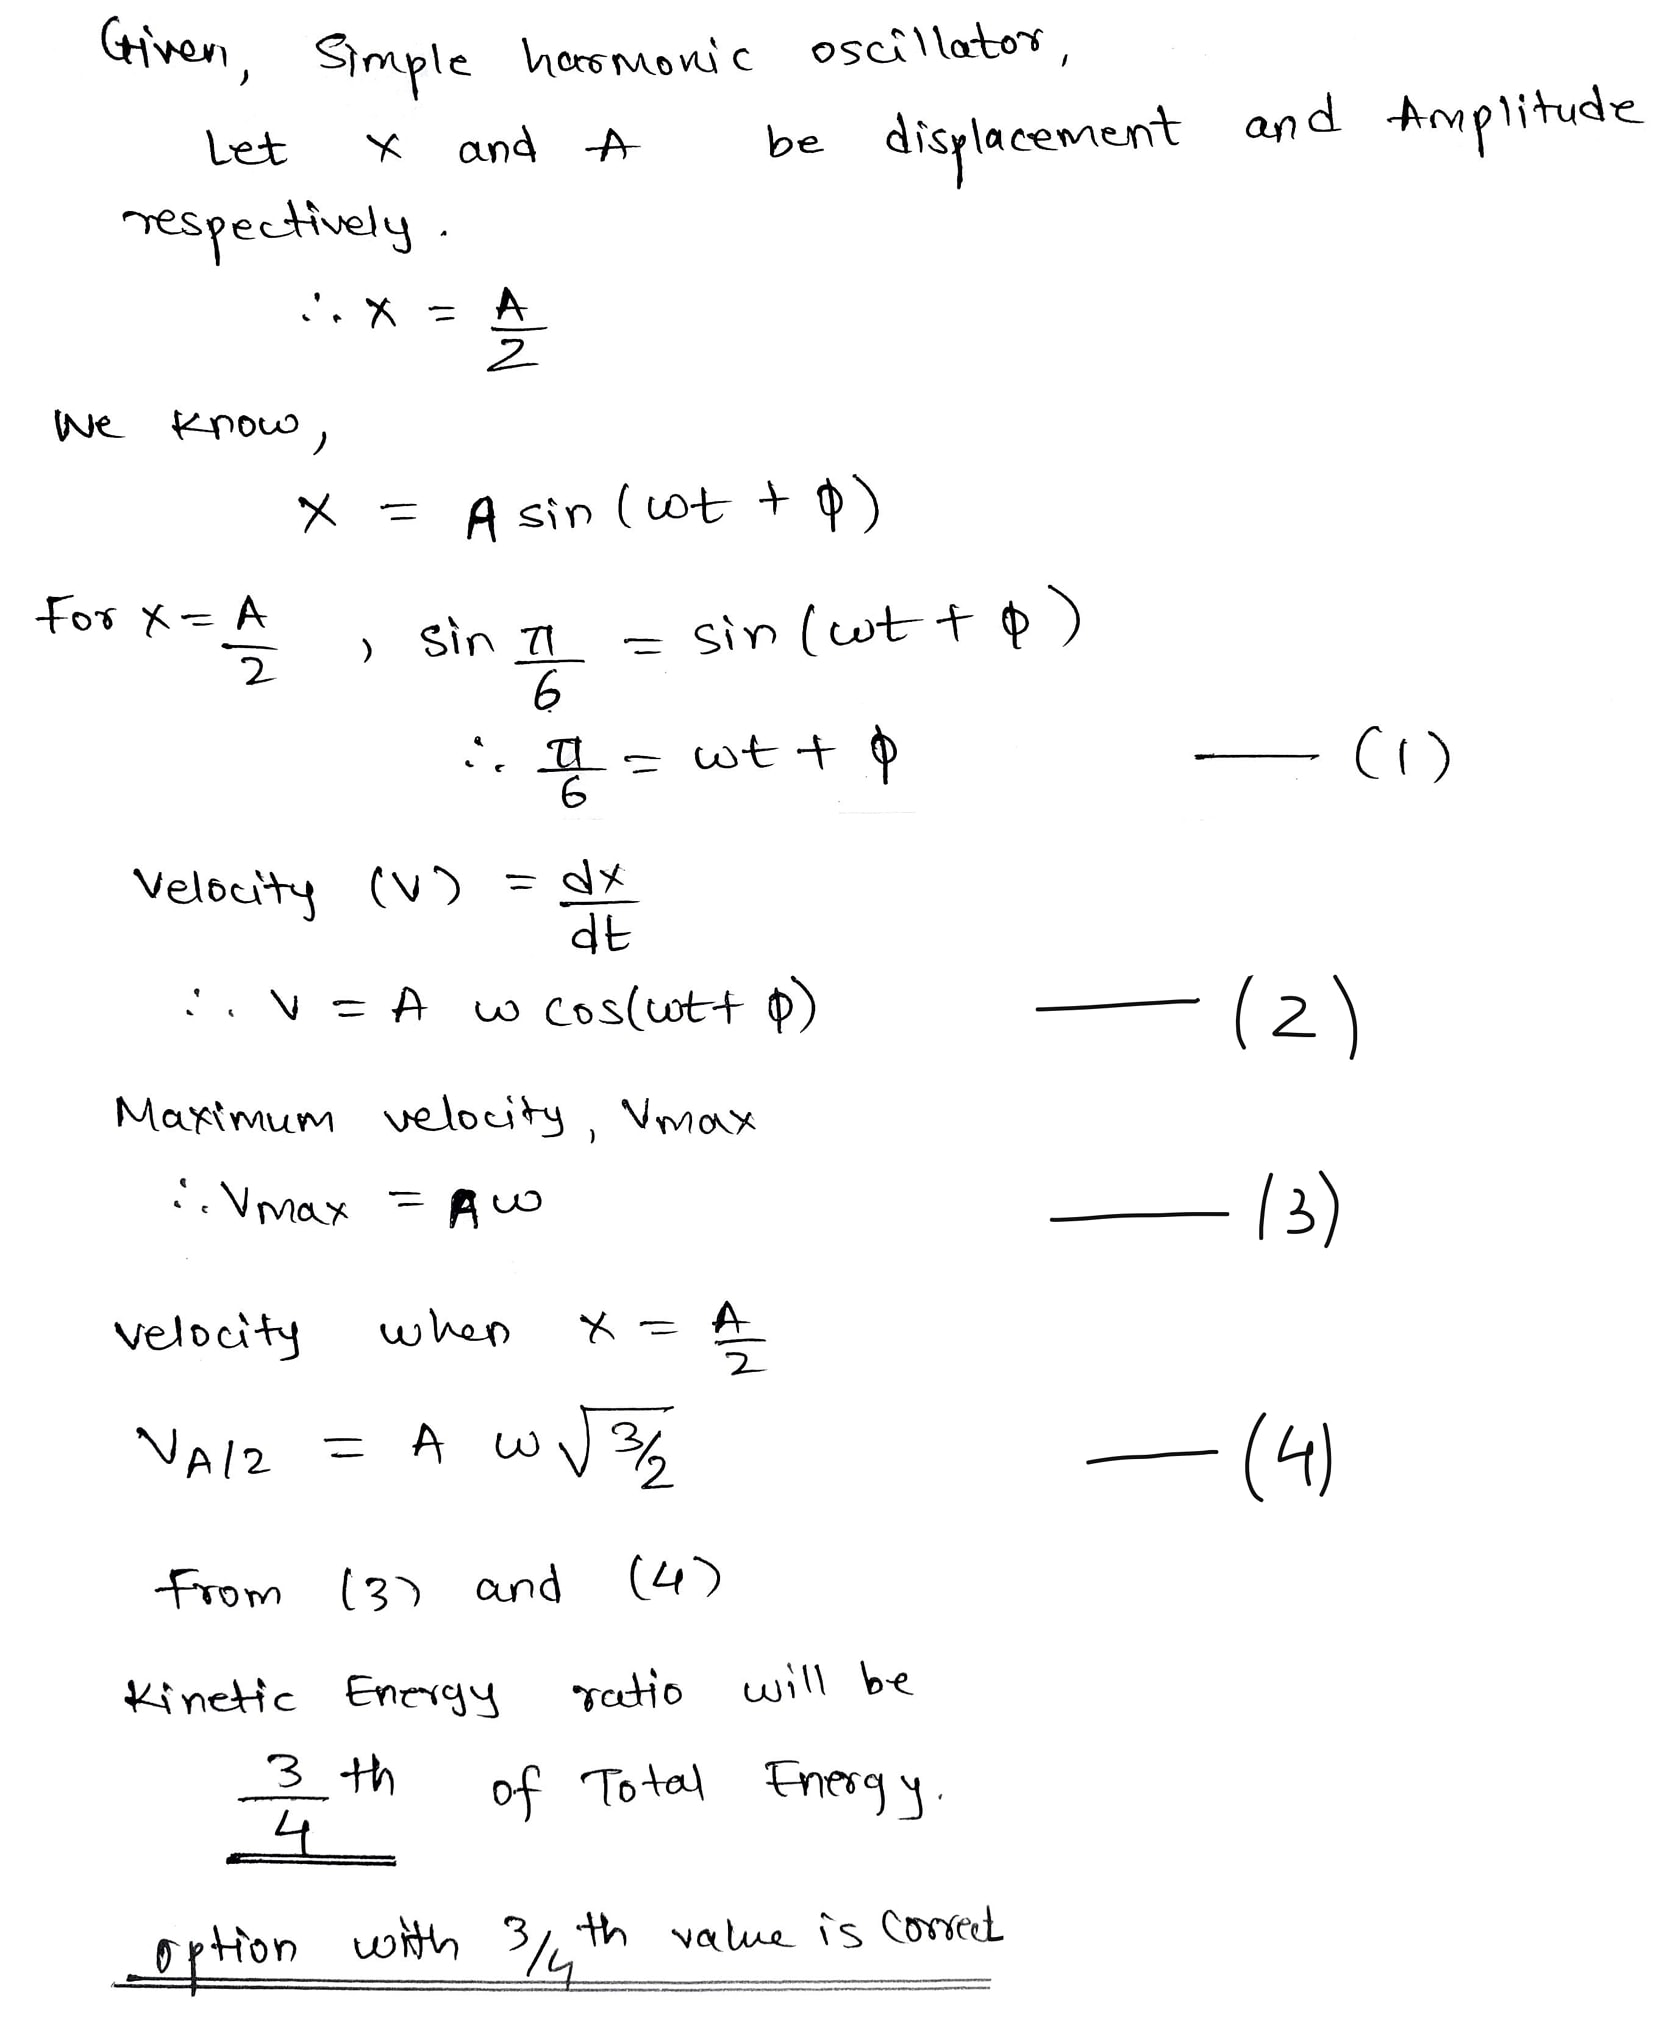 Given, Simple harmonic oscillator,
Let x and A be displacement and Amplitude
respectively.
∴ x = A/2
We know,
x = A sin (ωt + φ)
For x = A/2 , sin π/6 = sin (ωt + φ)
∴ π/6 = ωt + φ — (1)
Velocity (V) = dx/dt
∴ V = A ω cos(ωt + φ) — (2)
Maximum velocity, Vmax
∴ Vmax = A ω — (3)
velocity when x = A/2
V_{A/2} = A ω √(3/2) — (4)
From (3) and (4)
Kinetic Energy ratio will be
3/4 th of Total Energy.
option with 3/4 th value is correct